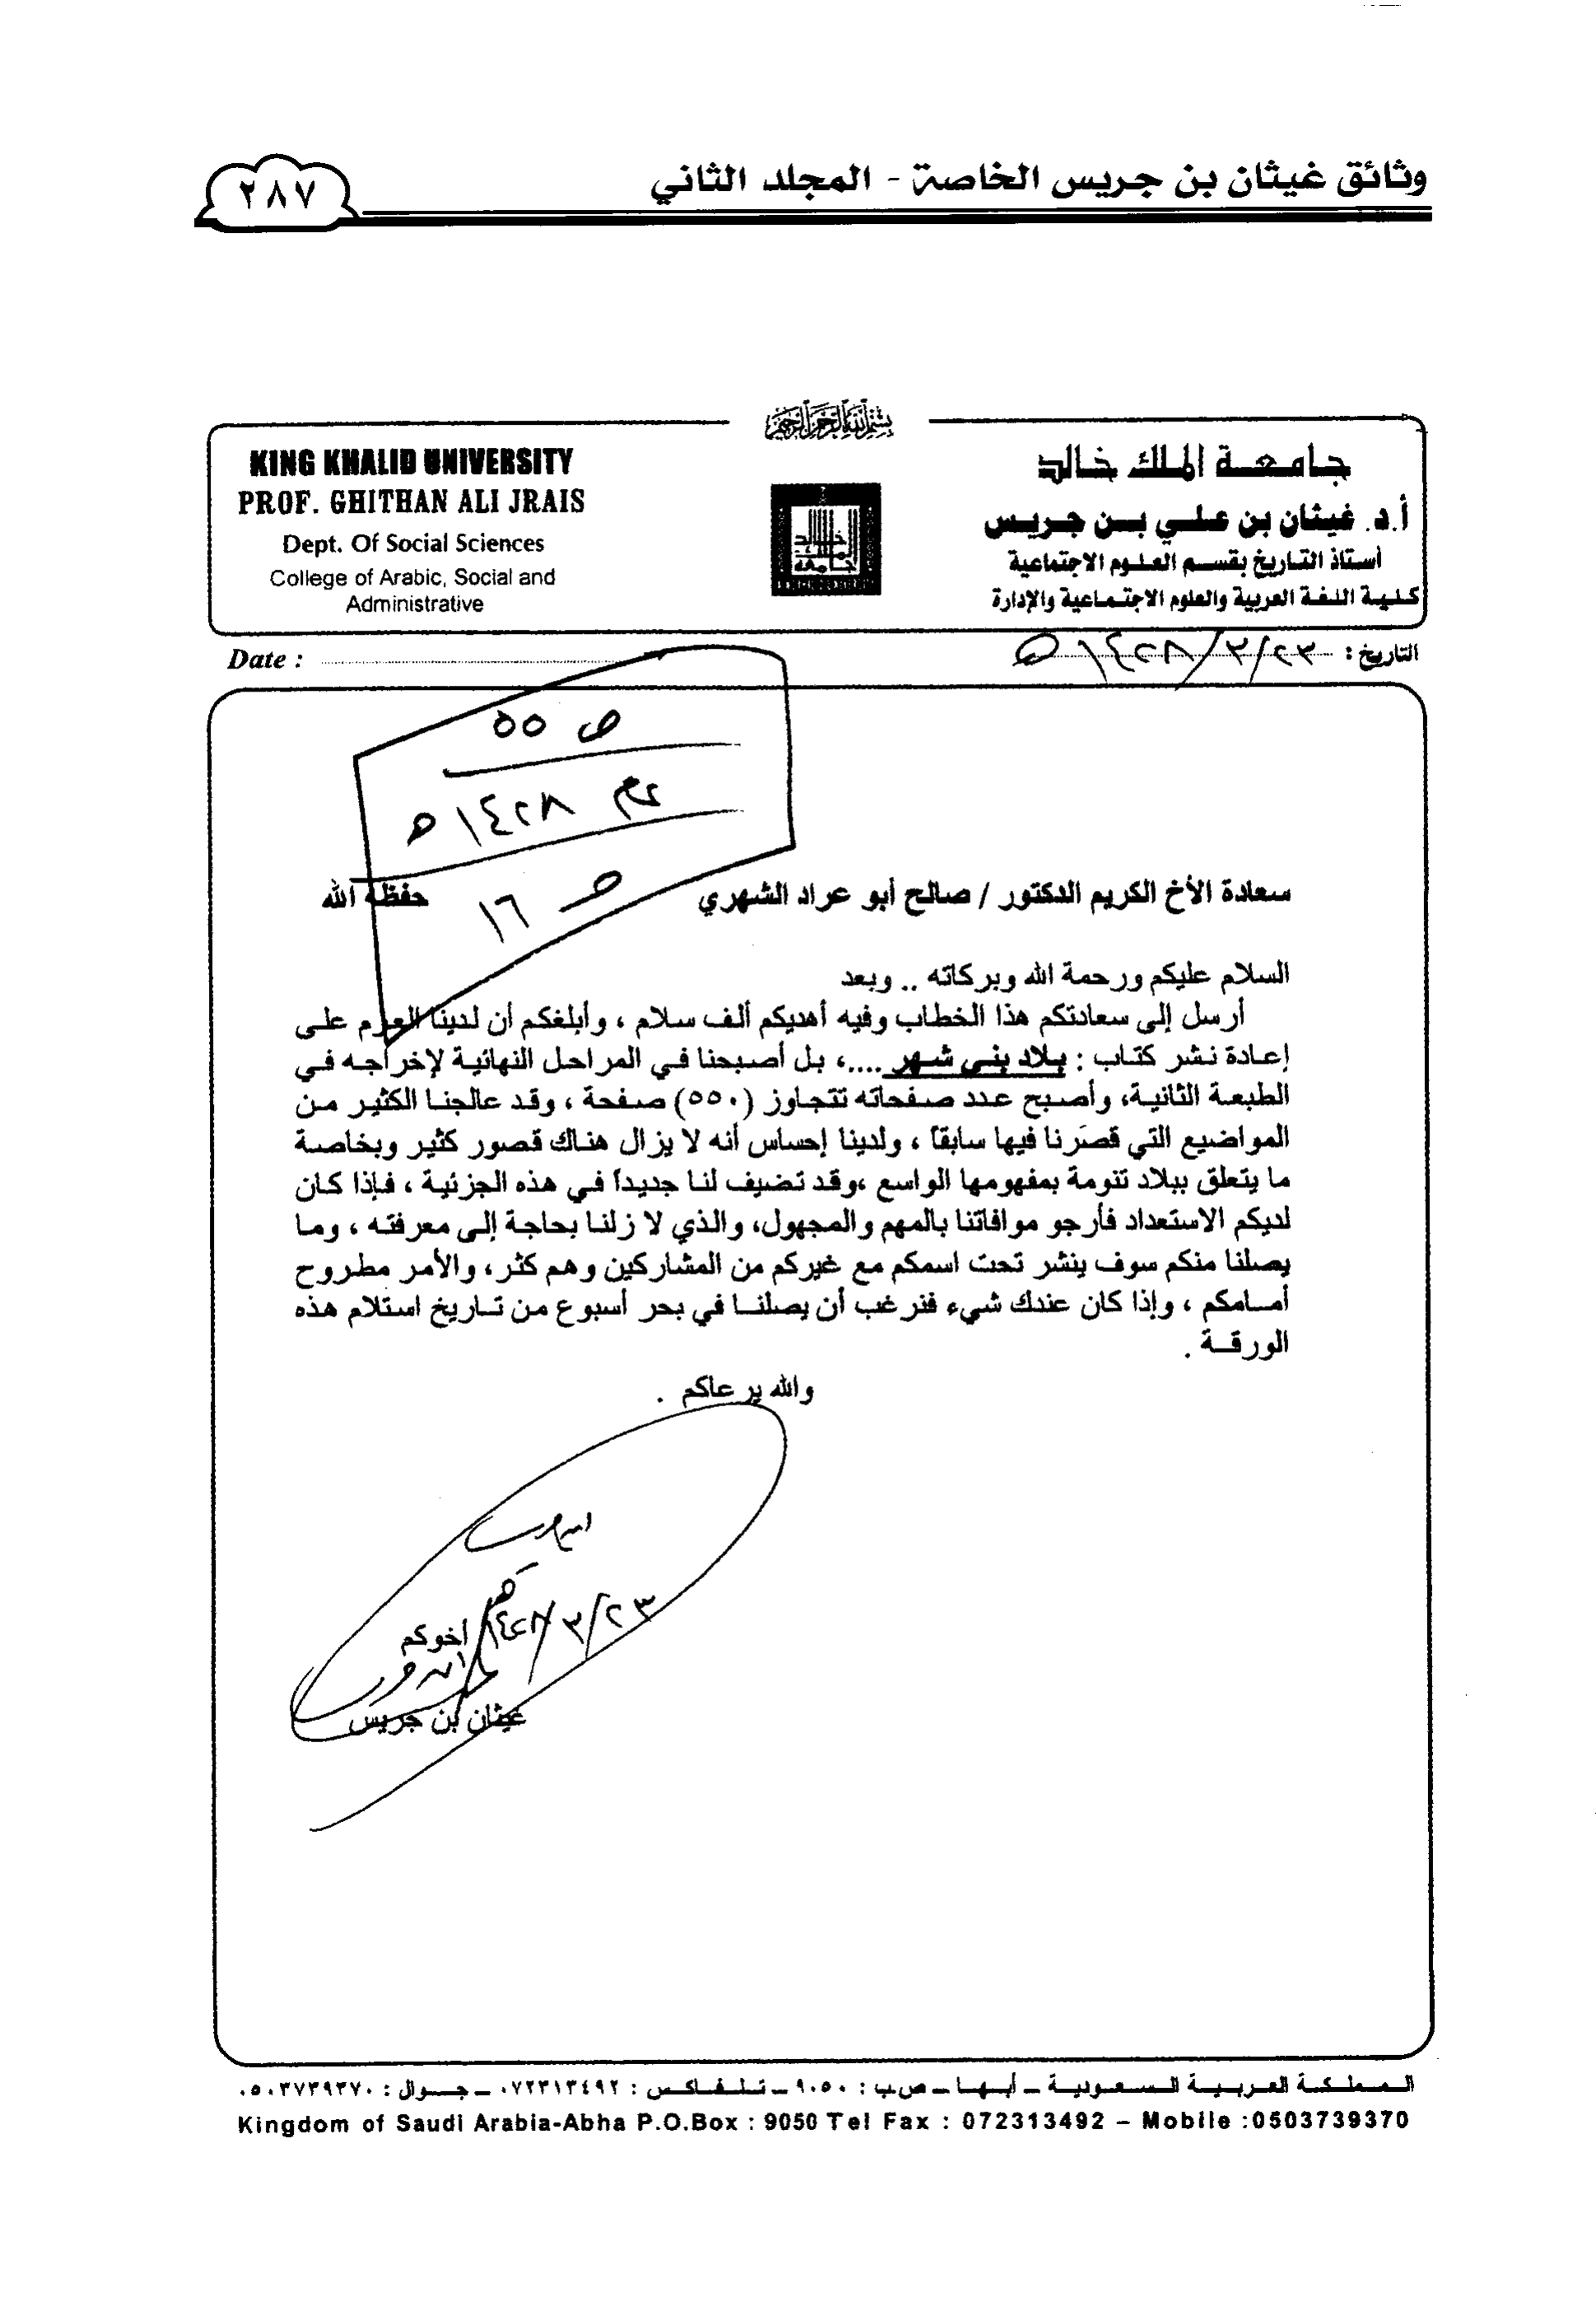 وثائق غيثان بن جريس الخاصة - المجلد الثاني
٢٨٧
بسم الله الرحمن الرحيم
جامعة الملك خالد
أ.د. غيثان بن علي بن جريس
أستاذ التاريخ بقسم العلوم الاجتماعية
كلية اللغة العربية والعلوم الاجتماعية والإدارة
KING KHALID UNIVERSITY
PROF. GHITHAN ALI JRAIS
Dept. Of Social Sciences
College of Arabic, Social and
Administrative
التاريخ : ٢٣/٣/١٤٢٨هـ
Date :
ص ٥٥
عام ١٤٢٨هـ
ص ١٦
سعادة الأخ الكريم الدكتور / صالح أبو عراد الشهري حفظه الله
السلام عليكم ورحمة الله وبركاته .. وبعد
أرسل إلى سعادتكم هذا الخطاب وفيه أهديكم ألف سلام ، وأبلغكم أن لدينا العزم على
إعادة نشر كتاب : بلاد بني شهر ....، بل أصبحنا في المراحل النهائية لإخراجه في
الطبعة الثانية، وأصبح عدد صفحاته تتجاوز (٥٥٠) صفحة ، وقد عالجنا الكثير من
المواضيع التي قصّرنا فيها سابقاً ، ولدينا إحساس أنه لا يزال هناك قصور كثير وبخاصة
ما يتعلق ببلاد تنومة بمفهومها الواسع ،وقد تضيف لنا جديداً في هذه الجزئية ، فإذا كان
لديكم الاستعداد فأرجو موافاتنا بالمهم والمجهول، والذي لا زلنا بحاجة إلى معرفته ، وما
يصلنا منكم سوف ينشر تحت اسمكم مع غيركم من المشاركين وهم كثر، والأمر مطروح
أمامكم ، وإذا كان عندك شيء فنرغب أن يصلنا في بحر أسبوع من تاريخ استلام هذه
الورقة .
والله يرعاكم .
٢٣/٣/١٤٢٨هـ
أخوكم
غيثان بن جريس
المملكة العربية السعودية – أبها – ص.ب : ٩٠٥٠ – تلفاكس : ٠٧٢٣١٣٤٩٢ – جوال : ٠٥٠٣٧٣٩٣٧٠
Kingdom of Saudi Arabia-Abha P.O.Box : 9050 Tel Fax : 072313492 – Mobile :0503739370